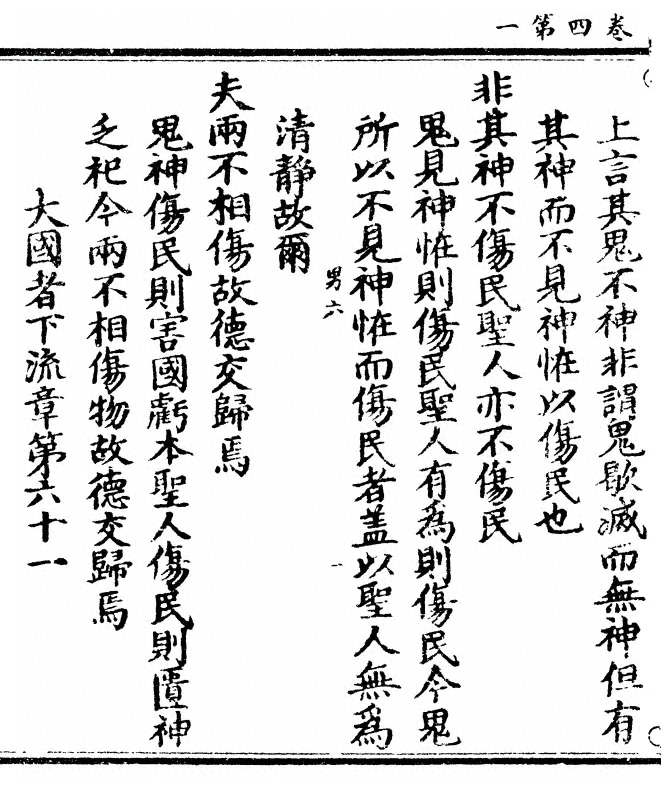 卷四第一
上言其鬼不神非謂鬼歇滅而無神但有
其神而不見神恠以傷民也
非其神不傷民聖人亦不傷民
鬼見神恠則傷民聖人有為則傷民今鬼
所以不見神恠而傷民者蓋以聖人無為
清靜故爾
男六
夫兩不相傷故德交歸焉
鬼神傷民則害國虧本聖人傷民則匱神
乏祀今兩不相傷物故德交歸焉
大國者下流章第六十一